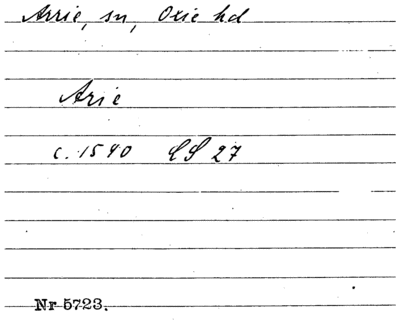 Arrie, sn, Oxie hd
Arie
c. 1540 LS 27
Nr 5723.